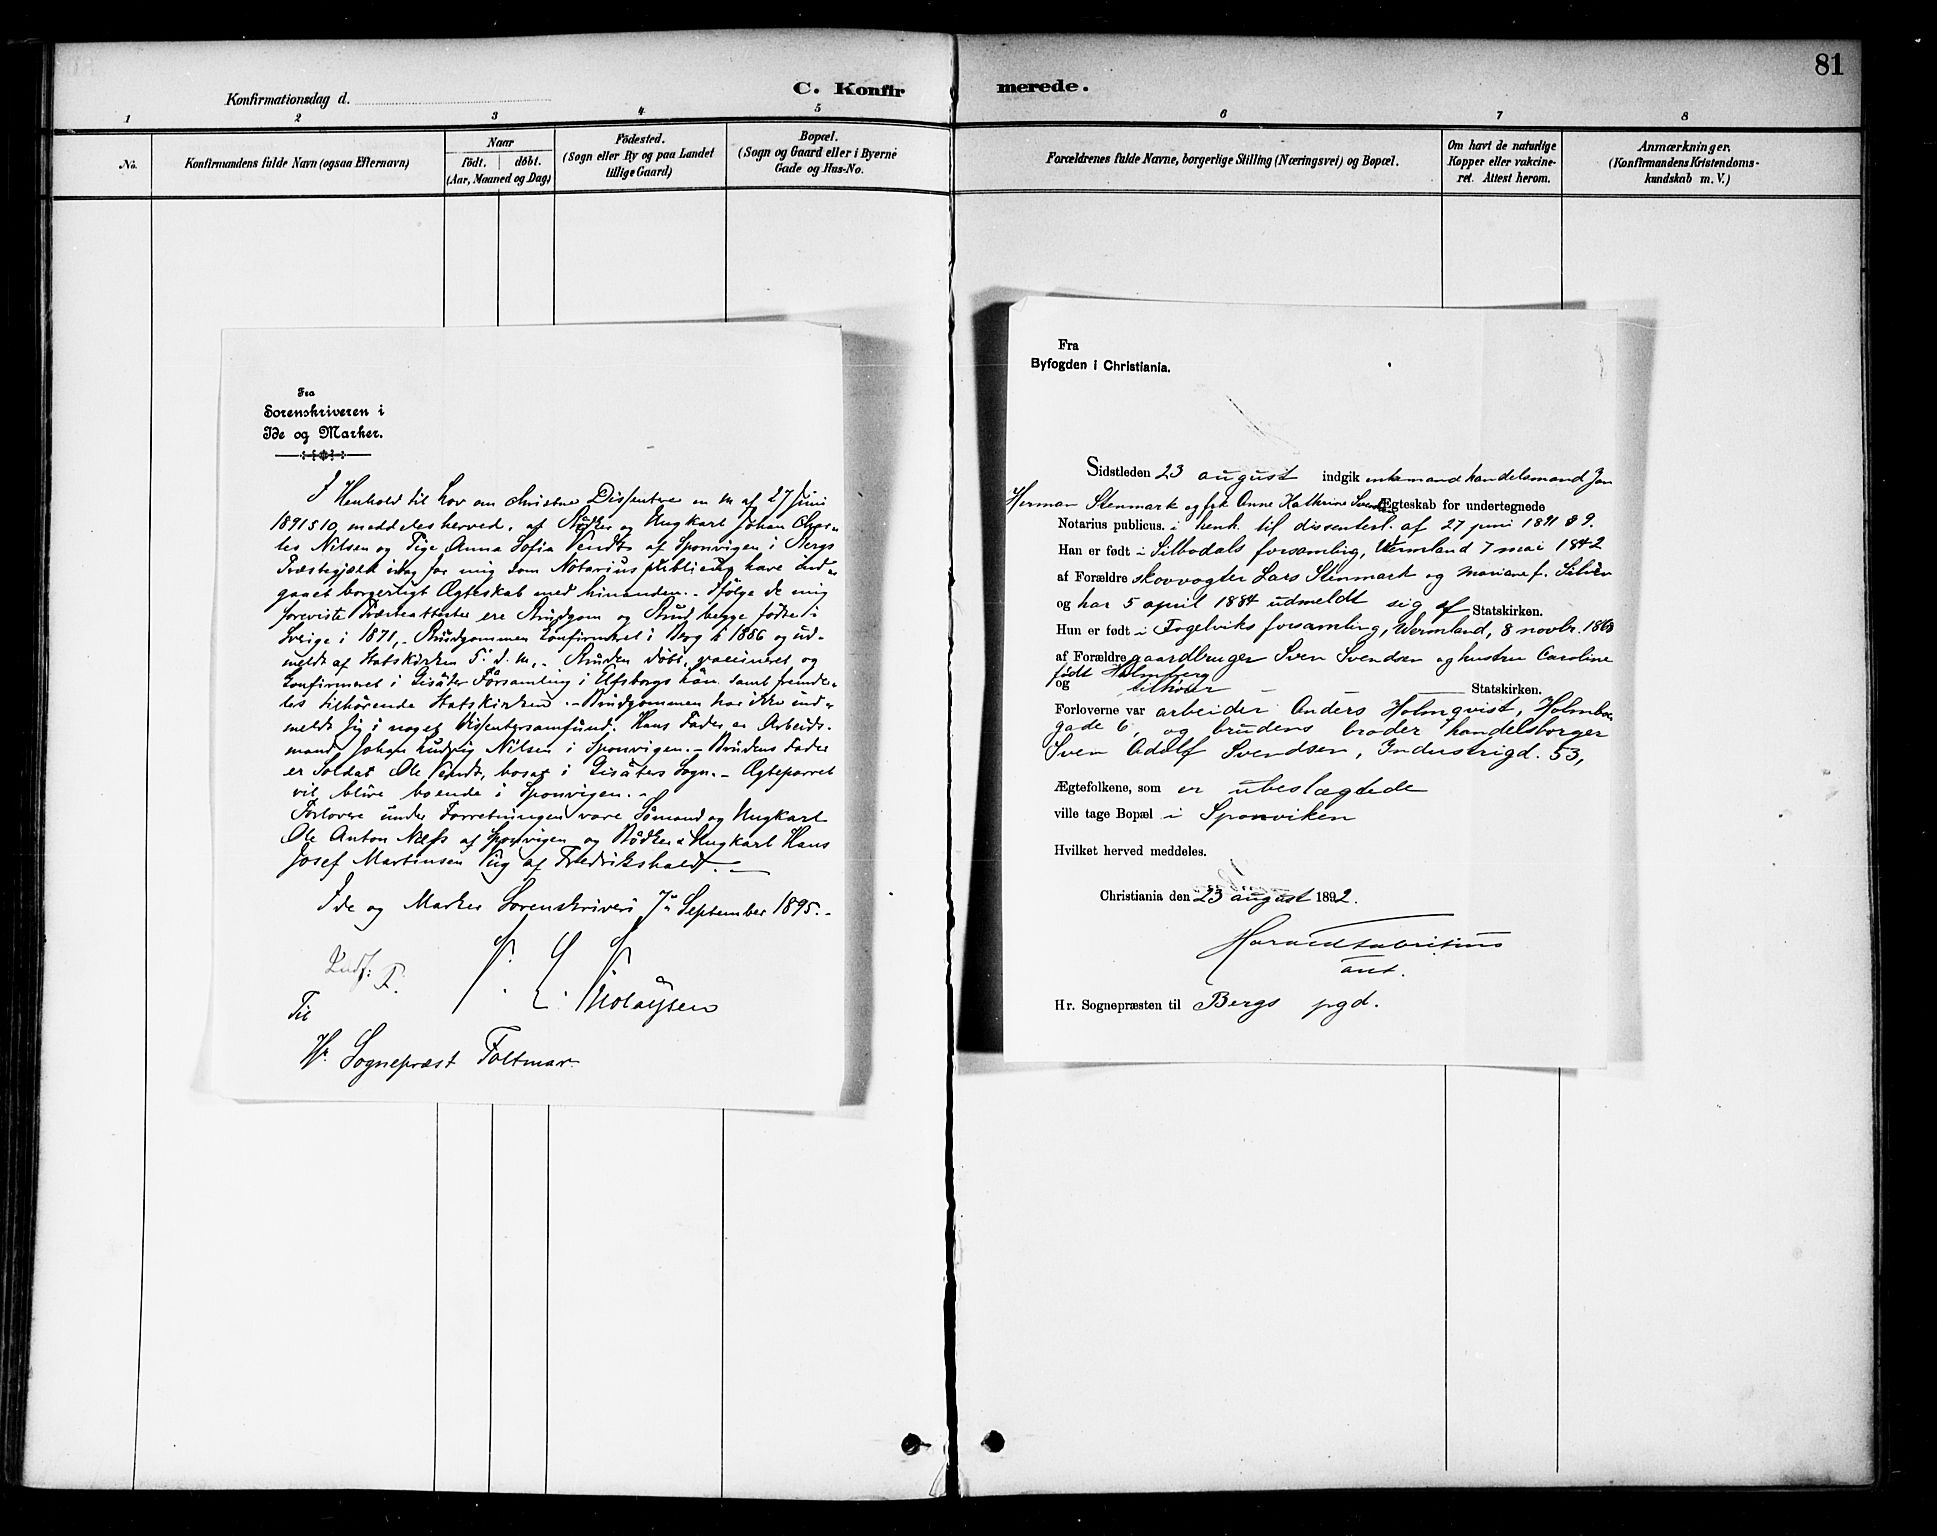 81
Konfirmationsdag d.
C. Konfirmerede.
1 2 3 4 5 6 7 8
No.
Konfirmandens fulde Navn (ogsaa Efternavn)
Naar
født. | døbt.
(Aar, Maaned og Dag)
Födested.
(Sogn eller By og paa Landet
tillige Gaard)
Bopæl.
(Sogn og Gaard eller i Byerne
Gade og Hus-No.
Forældrenes fulde Navne, borgerlige Stilling (Næringsvei) og Bopæl.
Om havt de naturlige
Kopper eller vakcine-
ret. Attest herom.
Anmærkninger.
(Konfirmandens Kristendoms-
kundskab m. V.)
Fra
Sorenskriveren i
Ide og Marker.
I Henhold til Lov om christne Dissentere en m af 27 Juni
1891 § 10 meddeles herved, at Bødker og Ungkarl Johan Char-
les Nilsen og Pige Anna Sofia Vendt af Sponvigen i Bergs
Præstegjæld idag for mig som Notarius publicus have ind-
gaaet borgerligt Ægteskab med hinanden. - Ifølge de mig
foreviste Præsteattester ere Brudgom og Brud begge fødte i
Sverige i 1871, - Brudgommen Confirmeret i Berg 1886 og ud-
meldt af Statskirken 5. d. M., - Bruden døbt, vaccineret og
Confirmeret i Församling i Elfsborgs Län samt fremde-
les tilhørende Statskirken. - Brudgommen har ikke ind-
meldt sig i noget Dissentersamfund. Hans Fader er Arbeids-
mand Johan Ludvig Nilsen i Sponvigen. - Brudens Fader
er Soldat Ole Vendt, bosat i Sogn. - Ægteparret
vil blive boende i Sponvigen. -
Forlovere under Forretningen vare Sømand og Ungkarl
Ole Anton Næss af Sponvigen og Bødker & Ungkarl Hans
Josef Martinsen af Fredrikshald. -
Ide og Marker Sorenskriveri 7 September 1895. -
Indf. F.
N. Nicolaysen
Til
Hr. Sognepræst Foltmar
Fra
Byfogden i Christiania.
Sidstleden 23 august indgik enkemand handelsmand Jan
Herman Stenmark og frk Anne Kathrine Svendsen Ægteskab for undertegnede
Notarius publicus. i henh. til dissenterl. af 27 juni 1891 § 9.
Han er født i Silbodals forsamling, Wermland 7 mai 1842
af Forældre skovvogter Lars Stenmark og Mariane f.
og har 5 april 1884 udmeldt sig af Statskirken.
Hun er født i Fogelviks forsamling, Wermland, 8 novbr. 1868
af Forældre gaardbruger Sven Svendsen og hustru Caroline
født Holmberg
og tilhører - Statskirken.
Forloverne var arbeider Anders Holmqvist, Holmbo-
gade 6, og brudens broder handelsborger
Sven Adolf Svendsen, Industrigd. 53,
Ægtefolkene, som er ubeslægtede
ville tage Bopæl i Sponviken
Hvilket herved meddeles.
Christiania den 23 august 1892.
Harald Fabritius
ant.
Hr. Sognepræsten til Bergs pgd.